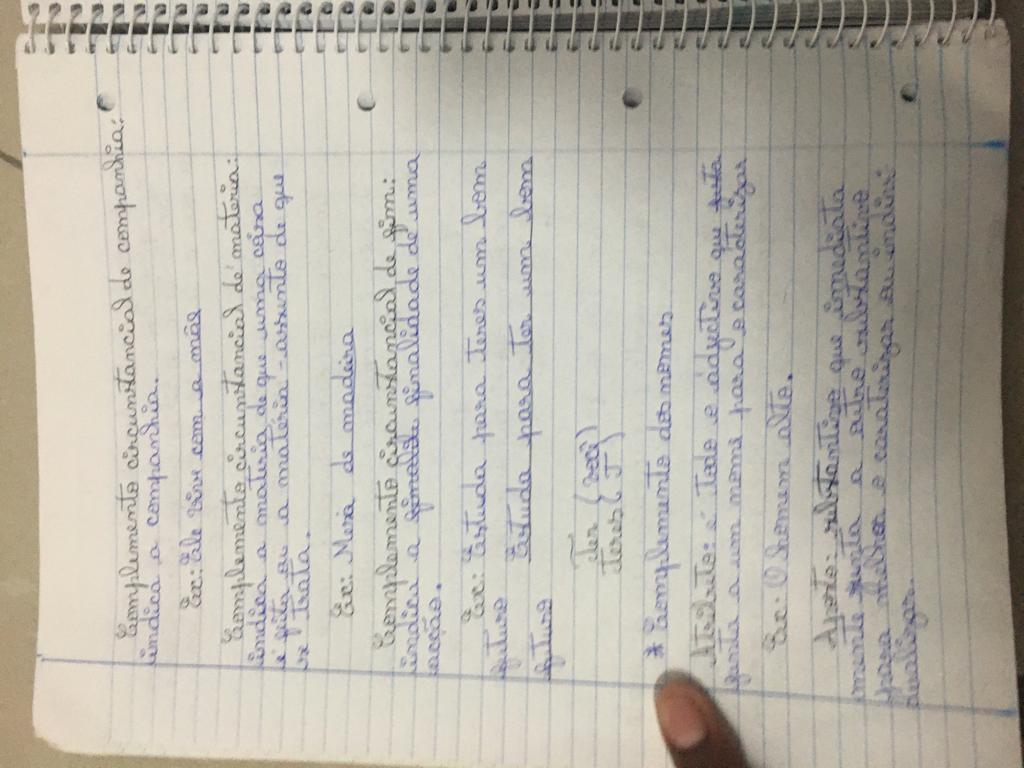 Complemento circunstancial de companhia:
indica a companhia.
Ex: Ele vive com a mãe
Complemento circunstancial de materia:
indica a materia de que uma coisa
é feita ou a matéria - assunto de que
se trata.
Ex: Mesa de madeira
Complemento circunstancial de fim:
indica a finalidade de uma
acção.
Ex: Estuda para teres um bom
futuro
Estuda para ter um bom
futuro
Ter (você)
teres (T)
* Complemento dos nomes
Atributo: é todo o adjectivo que
junta a um nome para o caracterizar
Ex: O homem alto.
Aposto: substantivo que imediata
mente junta a outro substantivo
para melhor o caraterizar ou indivi
dualizar.